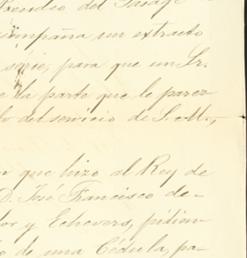 del Pasage
compaña un extracto
serie, para que un Sr.
la parte que le parez
del servicio de S. M.,
que hizo al Rey de
D. José Francisco de-
y Echevers, pidien-
de una Cédula, pa-